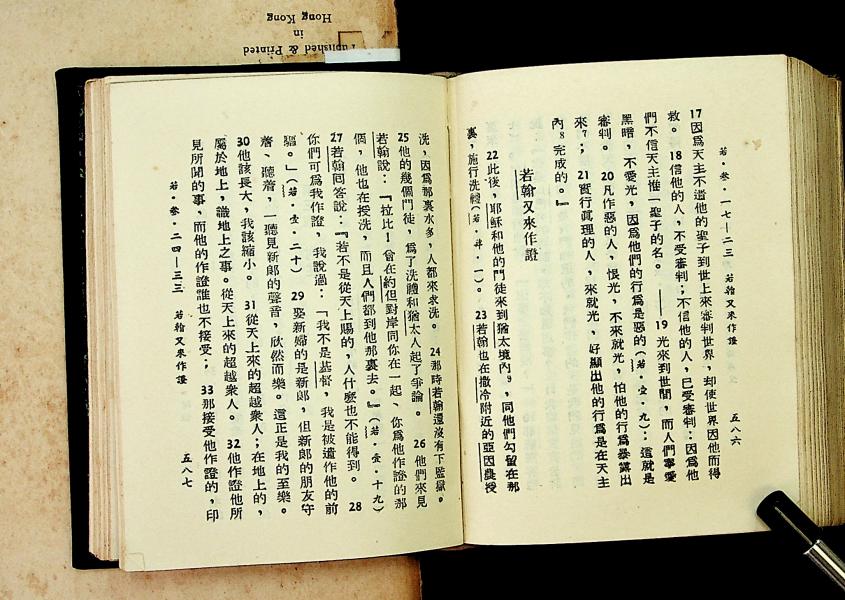 Published & Printed
in
Hong Kong
若·叁·一七—二三 若翰又來作證 五八六
17因爲天主不遣他的聖子到世上來審判世界，却使世界因他而得
救。18信他的人，不受審判；不信他的人，已受審判：因爲他
們不信天主惟一聖子的名。——19光來到世間，而人們寧愛
黑暗，不愛光，因爲他們的行爲是惡的（若·壹·九）：這就是
審判。20凡作惡的人，恨光，不來就光，怕他的行爲暴露出
來7；21實行眞理的人，來就光，好顯出他的行爲是在天主
內8完成的。』
若翰又來作證
22此後，耶穌和他的門徒來到猶太境內9，同他們勾留在那
裏，施行洗禮（若·肆·一）。23若翰也在撒冷附近的亞因農授
洗，因爲那裏水多，人都來求洗。24那時若翰還沒有下監獄。
25他的幾個門徒，爲了洗禮和猶太人起了爭論。26他們來見
若翰說：『拉比！曾在約但對岸同你在一起、你爲他作證的那
個，他也在授洗，而且人們都到他那裏去。』（若·壹·十九）
27若翰回答說：『若不是從天上賜的，人什麼也不能得到。28
你們可爲我作證，我說過：「我不是基督，我是被遣作他的前
驅。」（若·壹·二十）29娶新婦的是新郎，但新郎的朋友守
着、聽着，一聽見新郎的聲音，欣然而樂。這正是我的至樂。
30他該長大，我該縮小。31從天上來的超越衆人；在地上的，
屬於地上，識地上之事。從天上來的超越衆人。32他作證他所
見所聞的事，而他的作證誰也不接受；33那接受他作證的，印
若·叁·二四—三三 若翰又來作證 五八七